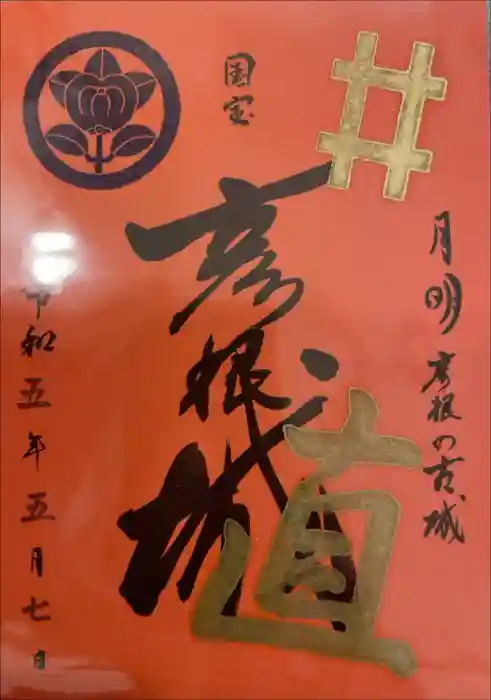 月明彦根の古城
国宝
彦根城
井
直
令和五年五月七日